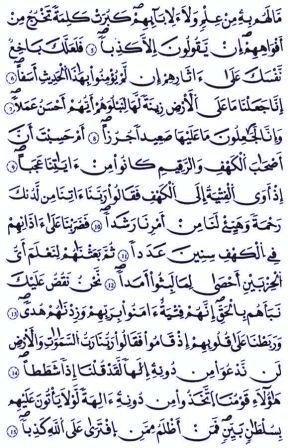 مَّا لَهُم بِهِۦ مِنْ عِلْمٍ وَلَا لِأَبَآئِهِمْ كَبُرَتْ كَلِمَةً تَخْرُجُ مِنْ
أَفْوَٰهِهِمْ إِن يَقُولُونَ إِلَّا كَذِبًا ٤ فَلَعَلَّكَ بَٰخِعٌ
نَّفْسَكَ عَلَىٰٓ ءَاثَٰرِهِمْ إِن لَّمْ يُؤْمِنُوا۟ بِهَٰذَا ٱلْحَدِيثِ أَسَفًا ٥
إِنَّا جَعَلْنَا مَا عَلَى ٱلْأَرْضِ زِينَةً لَّهَا لِنَبْلُوَهُمْ أَيُّهُمْ أَحْسَنُ عَمَلًا ٦
وَإِنَّا لَجَٰعِلُونَ مَا عَلَيْهَا صَعِيدًا جُرُزًا ٨ أَمْ حَسِبْتَ أَنَّ
أَصْحَٰبَ ٱلْكَهْفِ وَٱلرَّقِيمِ كَانُوا۟ مِنْ ءَايَٰتِنَا عَجَبًا ٩
إِذْ أَوَى ٱلْفِتْيَةُ إِلَى ٱلْكَهْفِ فَقَالُوا۟ رَبَّنَآ ءَاتِنَا مِن لَّدُنكَ
رَحْمَةً وَهَيِّئْ لَنَا مِنْ أَمْرِنَا رَشَدًا ١٠ فَضَرَبْنَا عَلَىٰٓ ءَاذَانِهِمْ
فِى ٱلْكَهْفِ سِنِينَ عَدَدًا ١١ ثُمَّ بَعَثْنَٰهُمْ لِنَعْلَمَ أَىُّ
ٱلْحِزْبَيْنِ أَحْصَىٰ لِمَا لَبِثُوٓا۟ أَمَدًا ١٢ نَّحْنُ نَقُصُّ عَلَيْكَ
نَبَأَهُم بِٱلْحَقِّ إِنَّهُمْ فِتْيَةٌ ءَامَنُوا۟ بِرَبِّهِمْ وَزِدْنَٰهُمْ هُدًى ١٣
وَرَبَطْنَا عَلَىٰ قُلُوبِهِمْ إِذْ قَامُوا۟ فَقَالُوا۟ رَبُّنَا رَبُّ ٱلسَّمَٰوَٰتِ وَٱلْأَرْضِ
لَن نَّدْعُوَا۟ مِن دُونِهِۦٓ إِلَٰهًا لَّقَدْ قُلْنَآ إِذًا شَطَطًا ١٤
هَٰٓؤُلَآءِ قَوْمُنَا ٱتَّخَذُوا۟ مِن دُونِهِۦٓ ءَالِهَةً لَّوْلَا يَأْتُونَ عَلَيْهِم
بِسُلْطَٰنٍۭ بَيِّنٍ فَمَنْ أَظْلَمُ مِمَّنِ ٱفْتَرَىٰ عَلَى ٱللَّهِ كَذِبًا ١٥